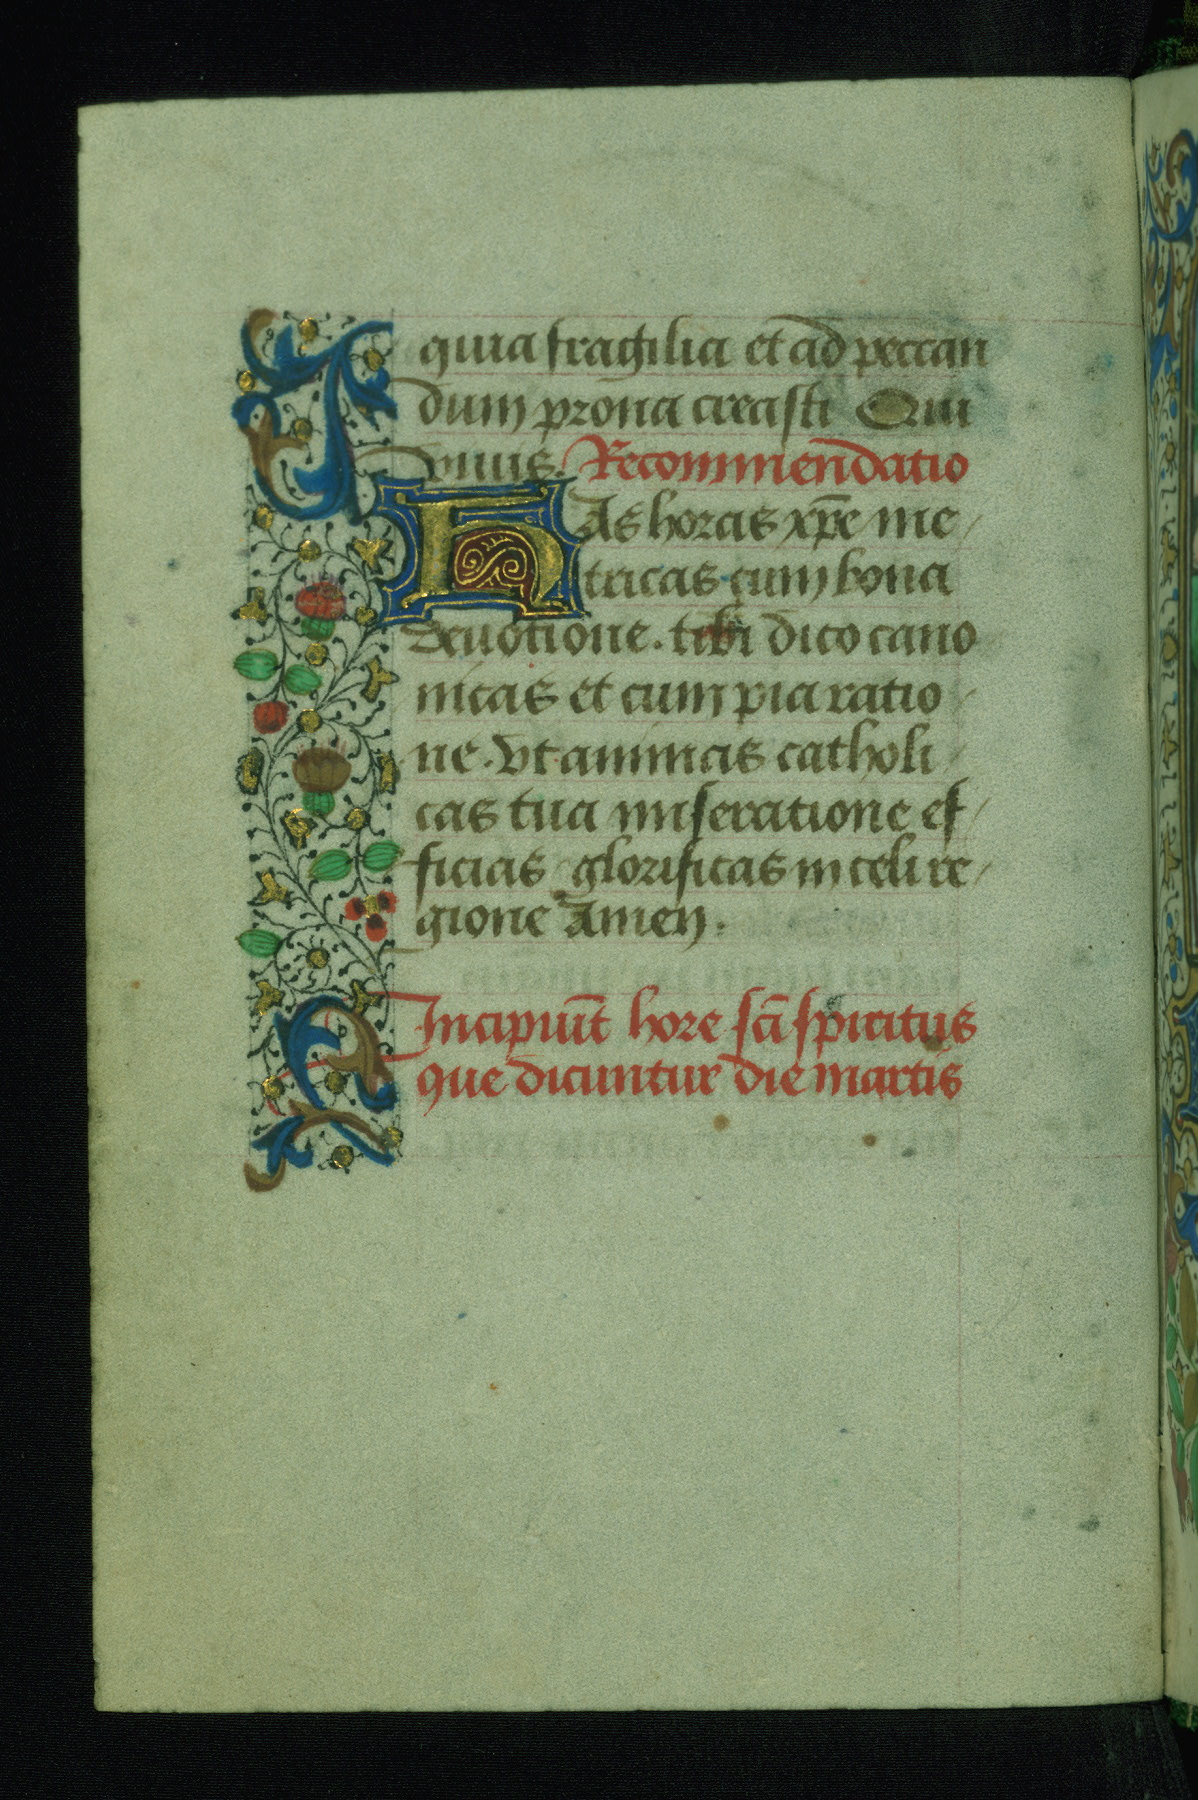 quia fragilia et ad peccan
dum prona creasti Qui
viuis. Recommendatio
HAs horas xp̄e me
tricas cum bona
deuotione. tibi dico cano
nicas et cum pia ratio
ne. Vt animas catholi
cas tua miseratione ef
ficias glorificas in celi re
gione Amen.
Incipiūt hore sc̄i spiritus
que dicuntur die martis